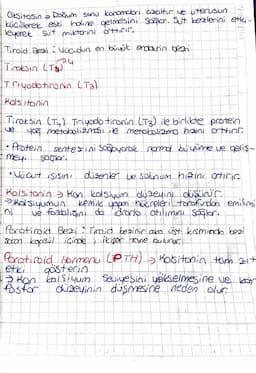 Oksitosin → Doğum sonu kanamaları azaltır ve uterusun
küçülerek eski haline gelmesini sağlar. Süt bezlerini etki-
leyerek süt miktarını arttırır.
Tiroid Bezi: Vücudun en büyük endokrin bezi
Tiroksin (T4)
Triyodotironin (T3)
Kalsitonin
Tiroksin (T4) Triyodotironin (T3) ile birlikte protein
ve yağ metabolizması ile metabolizma hızını arttırır.
• Protein sentezini sağlayarak normal büyüme ve geliş-
meyi sağlar.
• Vücut ısısını düzenler ve solunum hızını arttırır.
Kalsitonin → Kan kalsiyum düzeyini düşürür.
→ Kalsiyumun kemik yapan hücreleri tarafından emilimi
ni ve fazlalığını da idrarla atılımını sağlar.
Paratiroid Bezi: Tiroid bezinin arka üst kısmında bezi
saran kapsül içinde, ikişer tane bulunur.
Paratiroid hormonu (PTH) → Kalsitonin tam zıt
etki gösterir.
→ Kan kalsiyum seviyesini yükselmesine ve kan
fosfor düzeyinin düşmesine neden olur.